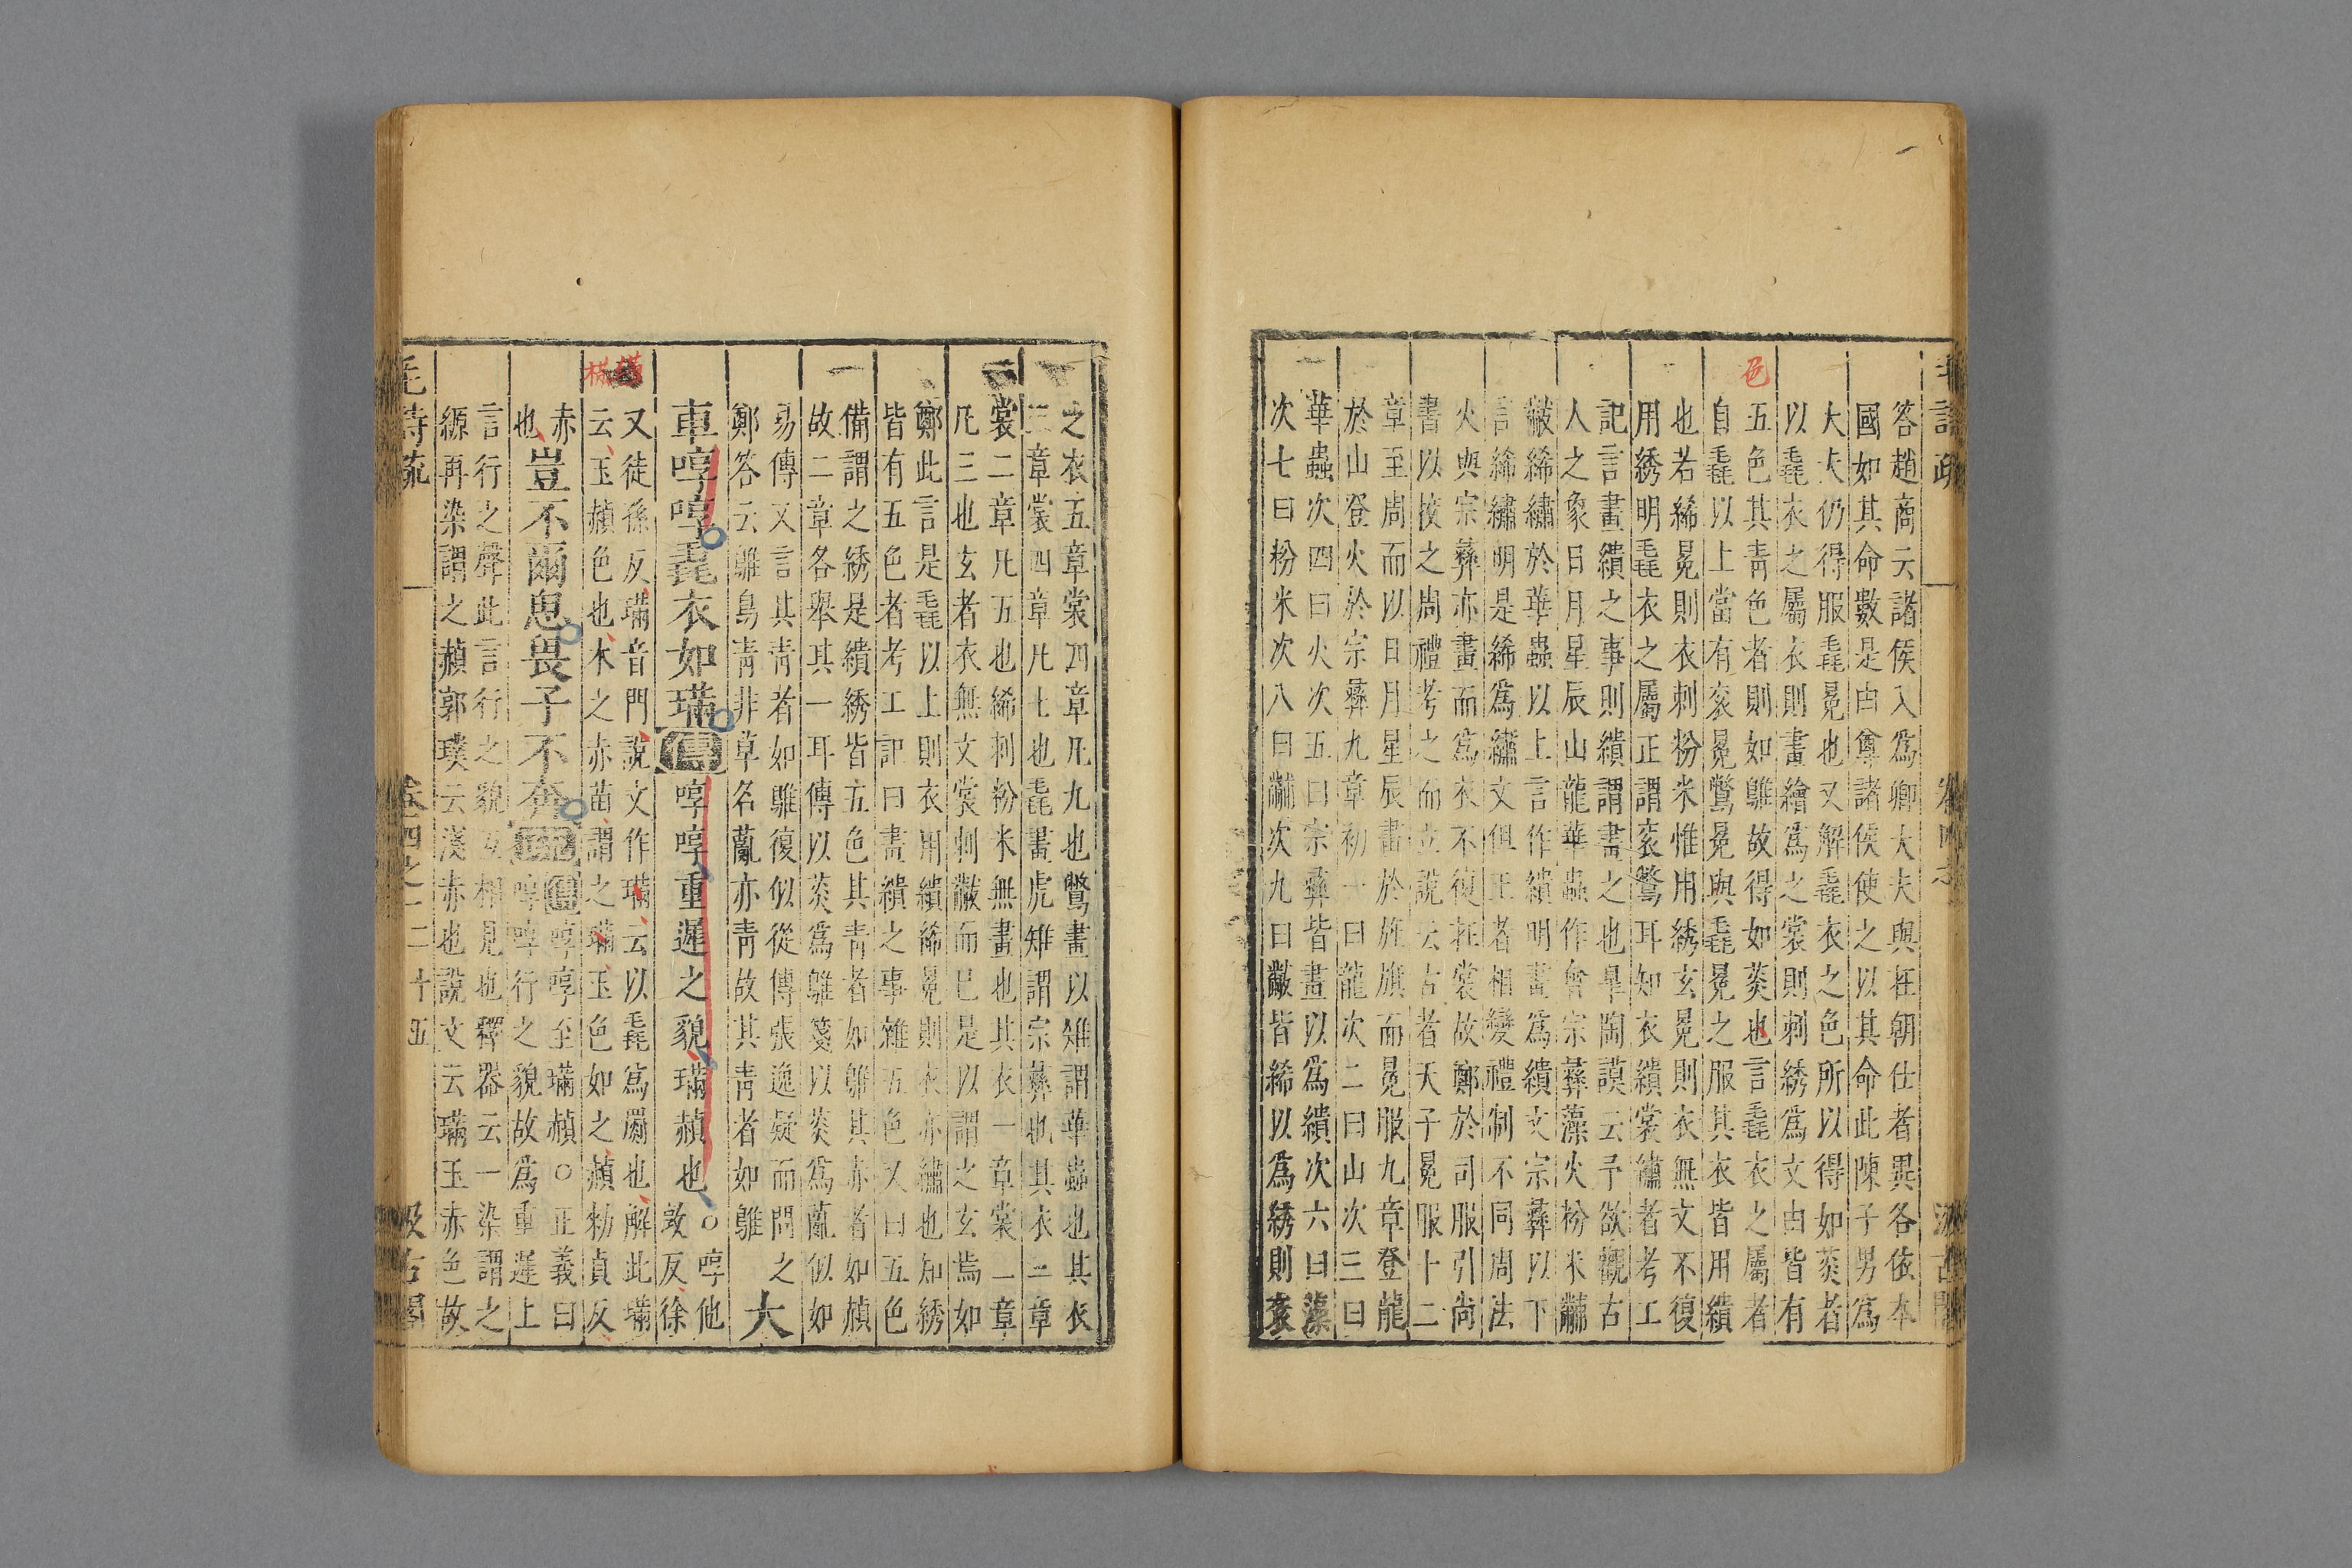 毛詩疏　卷四之一　汲古閣
色
答趙商云諸侯入爲卿大夫與在朝仕者異各依本
國如其命數是由尊諸侯使之以其命此陳子男爲
大夫仍得服毳冕也又解毳衣之色所以得如菼者
以毳衣之屬衣則畫繪爲之裳則刺綉爲文由皆有
五色其青色者則如鵻故得如菼也言毳衣之屬者
自毳以上當有衮冕鷩冕與毳冕之服其衣皆用繢
也若絺冕則衣刺粉米惟用綉玄冕則衣無文不復
用綉明毳衣之屬正謂衮鷩耳知衣繢裳繡者考工
記言畫繢之事則繢謂畫之也臯陶謨云予欲觀古
人之象日月星辰山龍華蟲作會宗彝藻火粉米黼
黻絺繡於華蟲以上言作繢明畫爲繢文宗彝以下
言絺繡明是絺爲繡文但王者相變禮制不同周法
火與宗彝亦畫而爲衣不復在裳故鄭於司服引尚
書以挍之周禮考之而立說云古者天子冕服十二
章至周而以日月星辰畫於旌旗而冕服九章登龍
於山登火於宗彝九章初一曰龍次二曰山次三曰
華蟲次四曰火次五曰宗彝皆畫以爲繢次六曰藻
次七曰粉米次八曰黼次九曰黻皆絺以爲綉則衮
之衣五章裳四章凡九也鷩畫以雉謂華蟲也其衣
三章裳四章凡七也毳畫虎雉謂宗彝也其衣三章
裳二章凡五也絺刺粉米無畫也其衣一章裳二章
凡三也玄者衣無文裳刺黻而已是以謂之玄焉如
鄭此言是毳以上則衣用繢絺冕則衣亦繡也知綉
皆有五色者考工記曰畫繢之事雜五色又曰五色
備謂之綉是繢綉皆五色其青者如鵻其赤者如赬
故二章各舉其一耳傳以菼爲鵻箋以菼爲薍似如
易傳又言其青者如鵻復似從傳張逸疑而問之
鄭答云鵻鳥青非草名薍亦青故其青者如鵻
大
車啍啍毳衣如璊傳啍啍重遲之貌璊赬也
○啍他
敦反徐
又徒孫反璊音門說文作璊云以毳爲罽也解此璊
云玉赬色也木之赤苗謂之璊玉色如之赬勑貞反
赤
也
豈不爾思畏子不奔疏
傳啍啍至璊赬○正義曰
啍啍行之貌故爲重遲上
言行之聲此言行之貌互相見也釋器云一染謂之
縓再染謂之赬郭璞云淺赤也說文云璊玉赤色故
毛詩疏　卷四之一　二十五　汲古閣